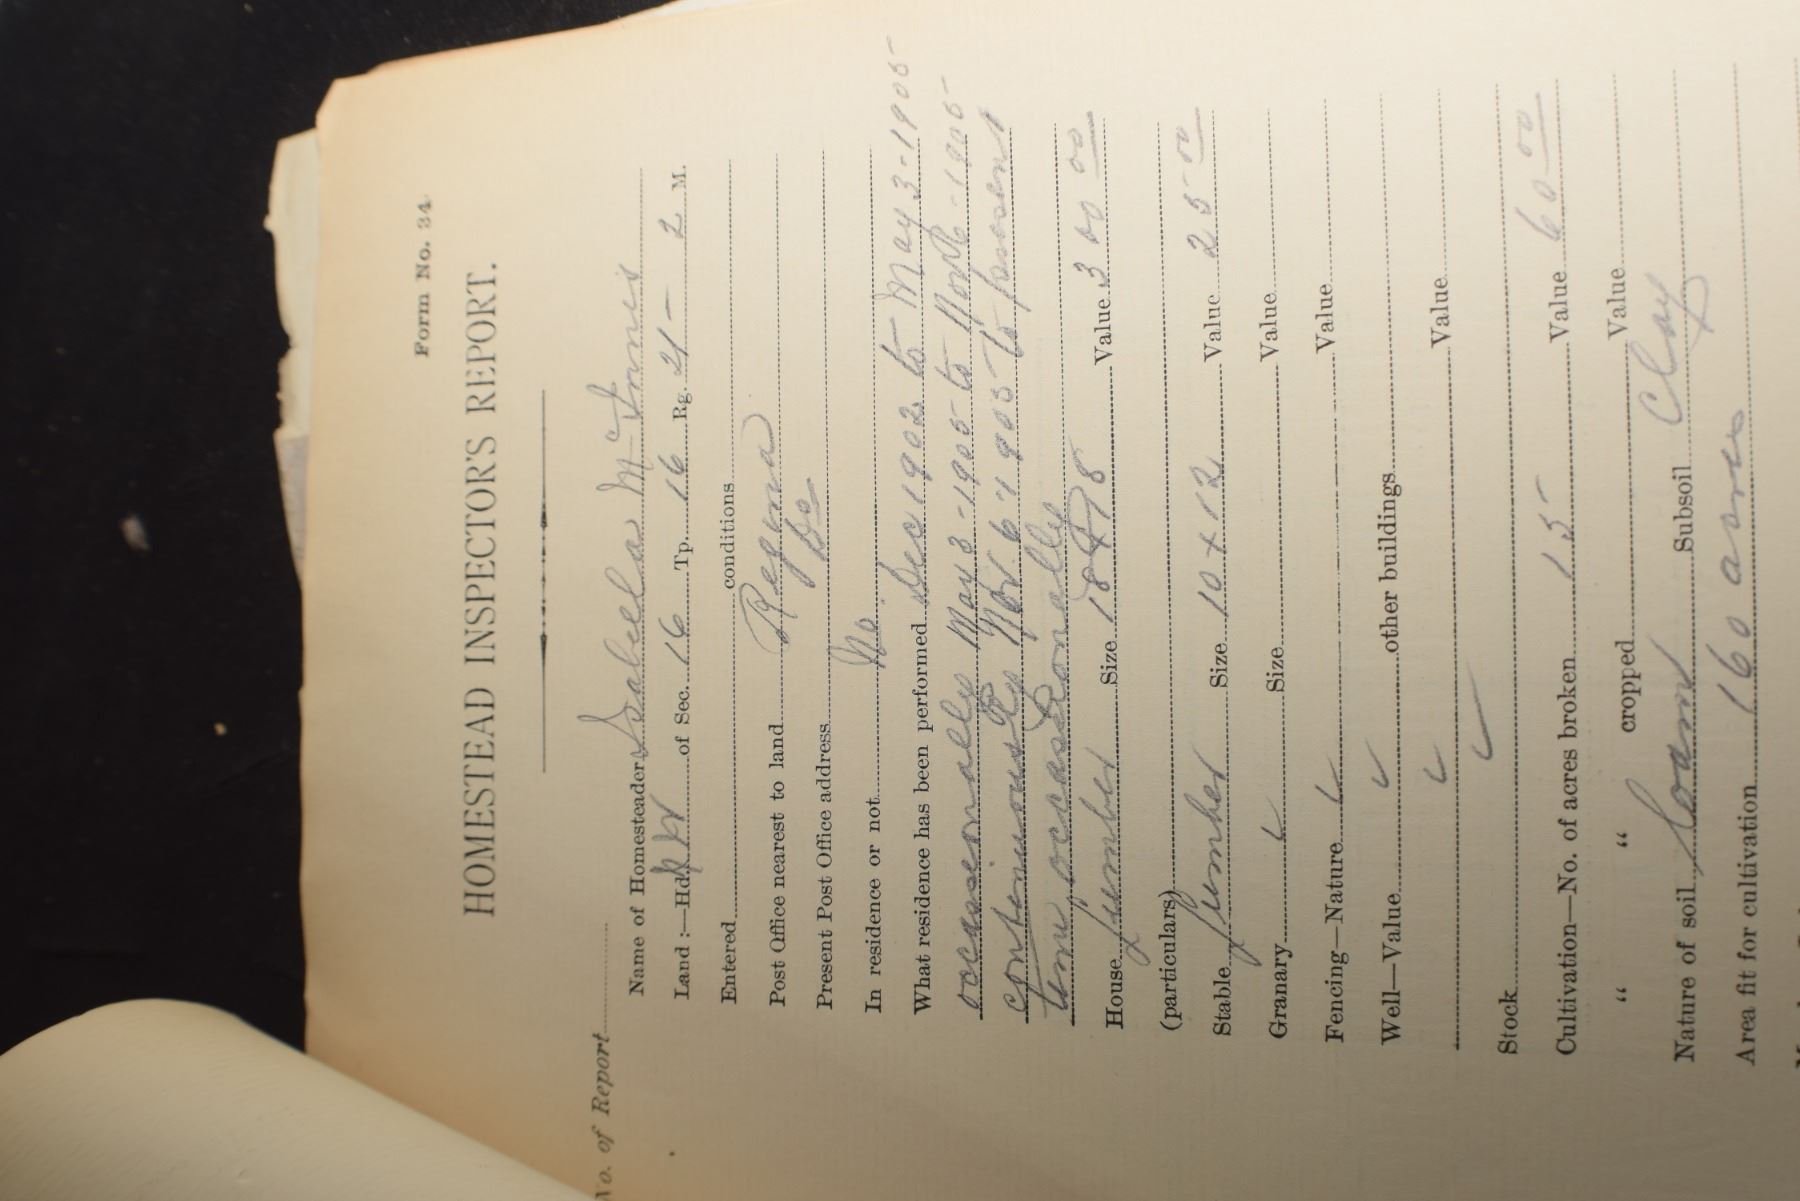 Form No. 34
HOMESTEAD INSPECTOR'S REPORT.
No. of Report
Name of Homesteader Isabella McInnis
Land:—Hd. of Sec. 16 Tp. 16 Rg. 21- 2 M.
Entered conditions
Post Office nearest to land Regina
Present Post Office address Do
In residence or not No.
What residence has been performed Dec 1902 to May 3-1905
occassionally May 3-1905 to Nov 6-1905-
continously Nov 6 1905 to present
time, occassionally
House Lumber Size Value 300 00
(particulars)
Stable Lumber Size 10 x 12 Value 25 00
Granary Size Value
Fencing—Nature Value
Well—Value other buildings
Value
Stock
Cultivation—No. of acres broken 15 Value 60 00
" " cropped Value
Nature of soil Loam Subsoil Clay
Area fit for cultivation 160 acres